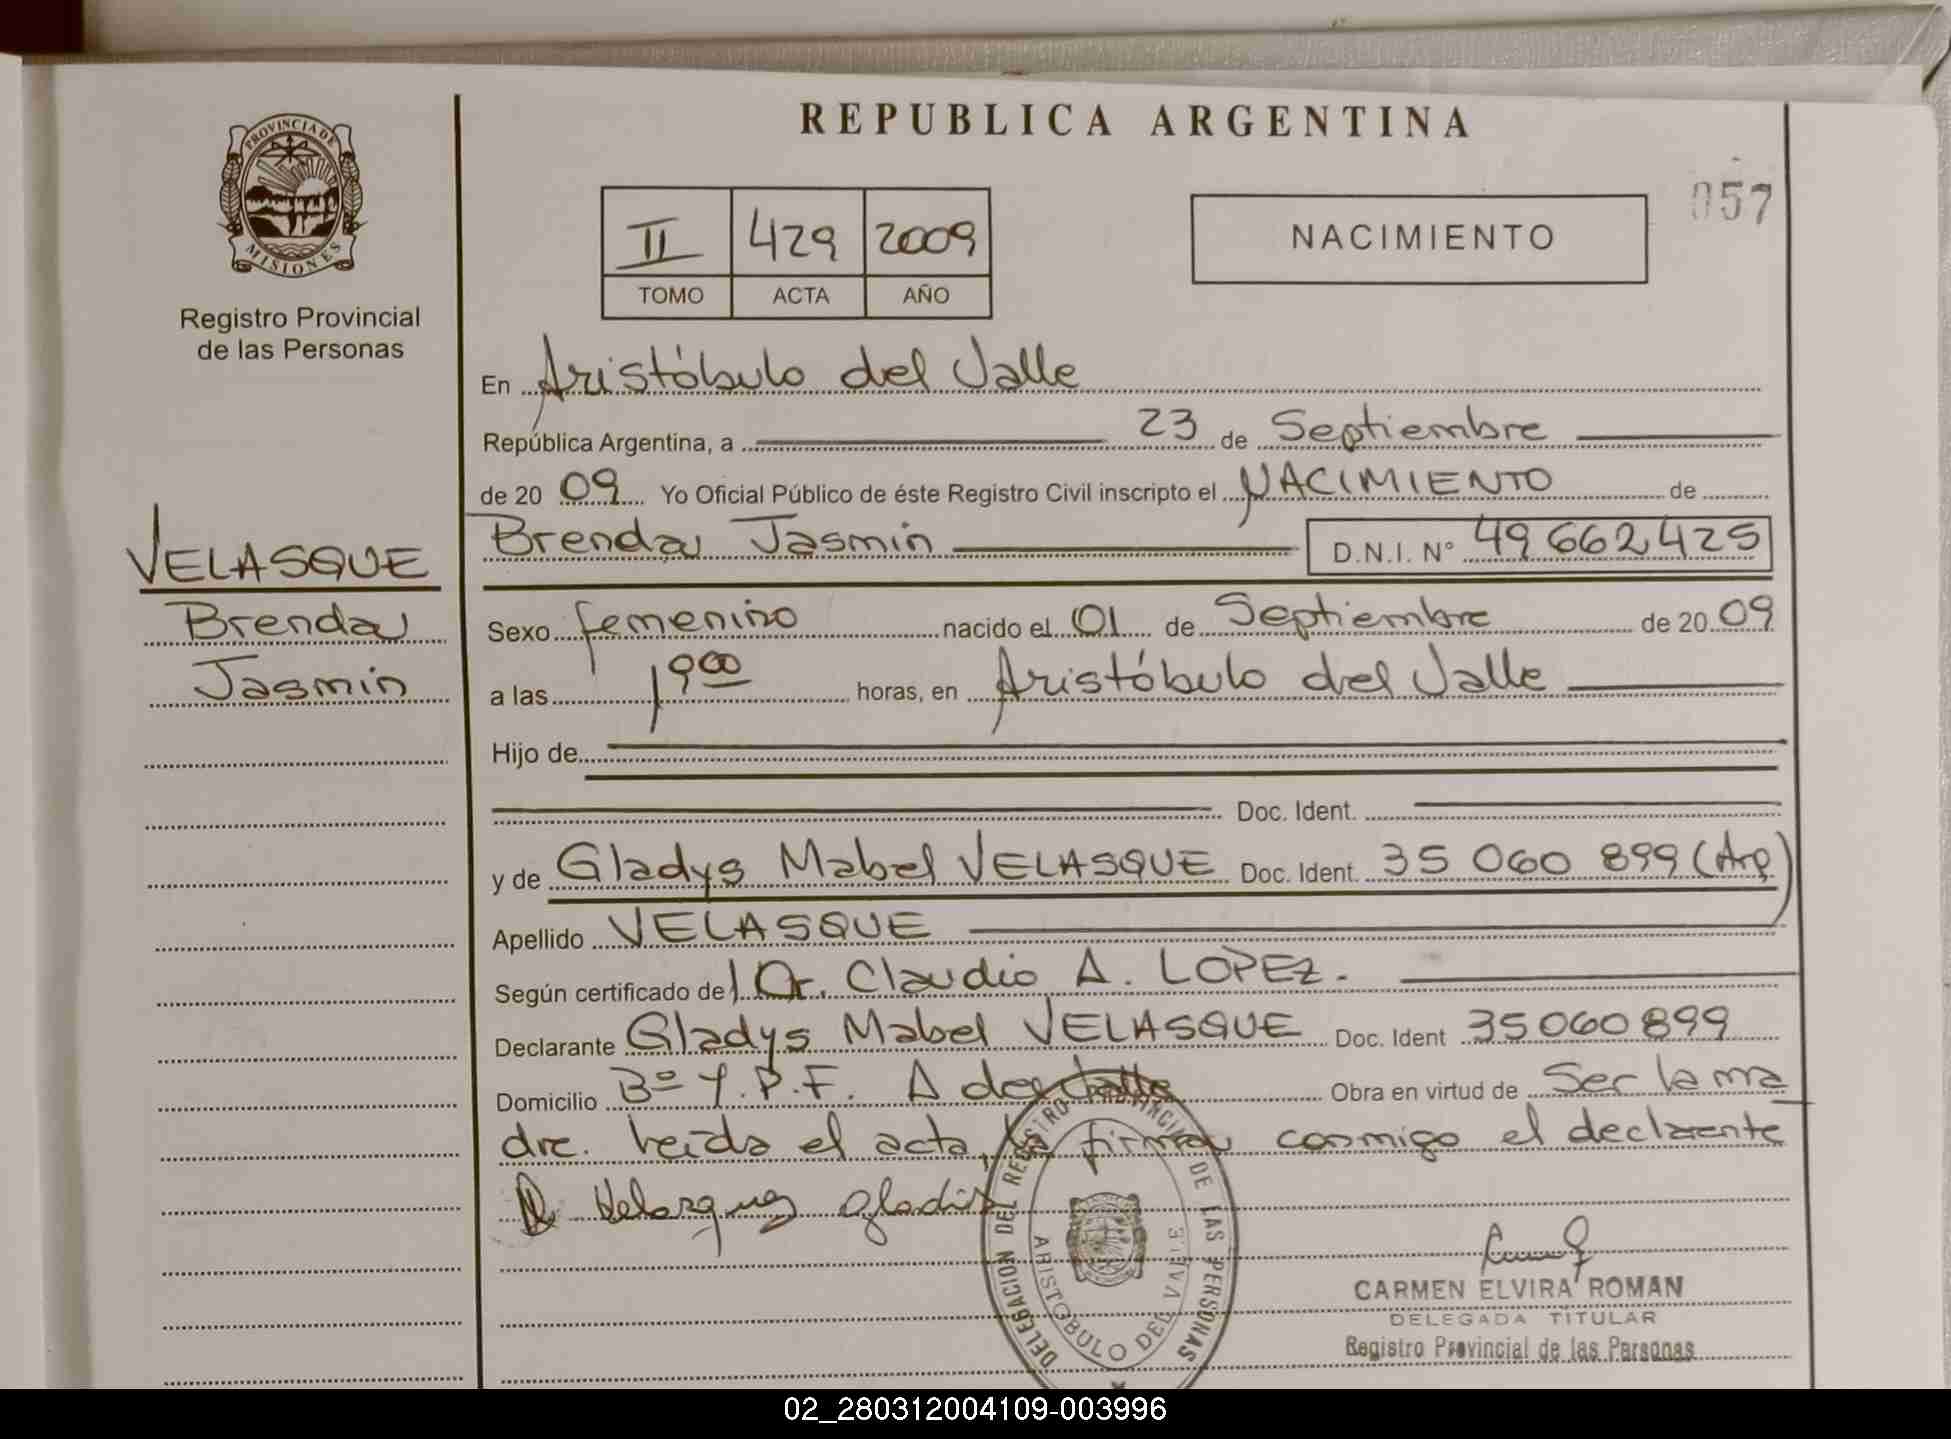 REPUBLICA ARGENTINA
057
PROVINCIA DE
MISIONES
Registro Provincial
de las Personas
II 429 2009
TOMO ACTA AÑO
NACIMIENTO
En Aristóbulo del Valle
República Argentina, a 23 de Septiembre
de 20 09 Yo Oficial Público de éste Registro Civil inscripto el NACIMIENTO de
Brenda Jasmin D.N.I. N° 49 662 425
VELASQUE
Brenda
Jasmin
Sexo femenino nacido el 01 de Septiembre de 20 09
a las 19 00 horas, en Aristóbulo del Valle
Hijo de
Doc. Ident.
y de Gladys Mabel VELASQUE Doc. Ident. 35 060 899 (Arg)
Apellido VELASQUE
Según certificado de Dr. Claudio A. LOPEZ.
Declarante Gladys Mabel VELASQUE Doc. Ident 35060899
Domicilio Bº Y.P.F. A del Valle Obra en virtud de Ser la ma
dre. leida el acta, la firma conmigo el declarante
Velasquez gladis
DELEGACION DEL REGISTRO PROVINCIAL DE LAS PERSONAS
ARISTOBULO DEL VALLE
CARMEN ELVIRA ROMAN
DELEGADA TITULAR
Registro Provincial de las Personas
02_280312004109-003996